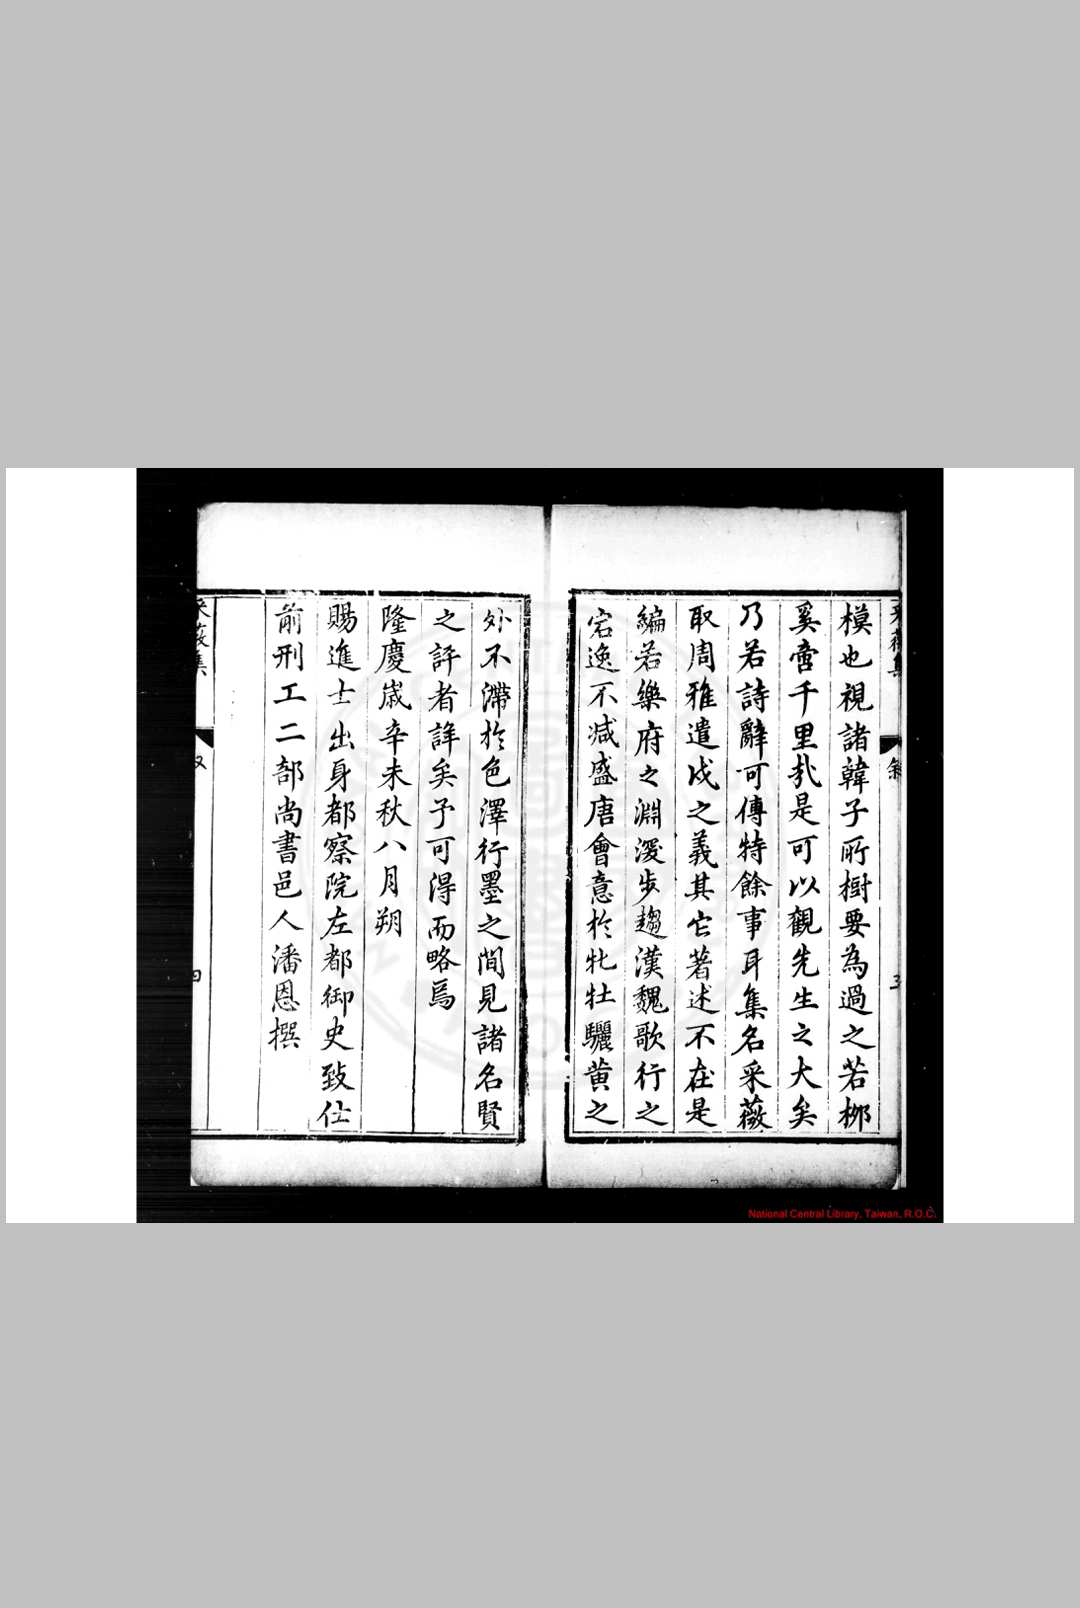 模也視諸韓子所樹要為過之若栁
奚啻千里㢤是可以觀先生之大矣
乃若詩辭可傳特餘事耳集名采薇
取周雅遣戍之義其它著述不在是
編若樂府之淵深步趨漢魏歌行之
宕逸不減盛唐會意於牝牡驪黄之
外不滯於色澤行墨之間見諸名賢
之評者詳矣予可得而略焉
隆慶歲辛未秋八月朔
賜進士出身都察院左都御史致仕
前刑工二部尚書邑人潘恩撰
采薇集
四
National Central Library, Taiwan, R.O.C.